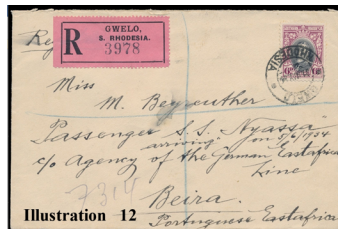 Reg
R
GWELO,
S. RHODESIA.
3978
GWELO
RHODESIA
Miss
M. Beyreuther
Passenger S.S. Nyassa
arriving on 5/6/1934
c/o Agency of the German Eastafrica
Line
Beira
Portuguese Eastafrica
7314
Illustration 12